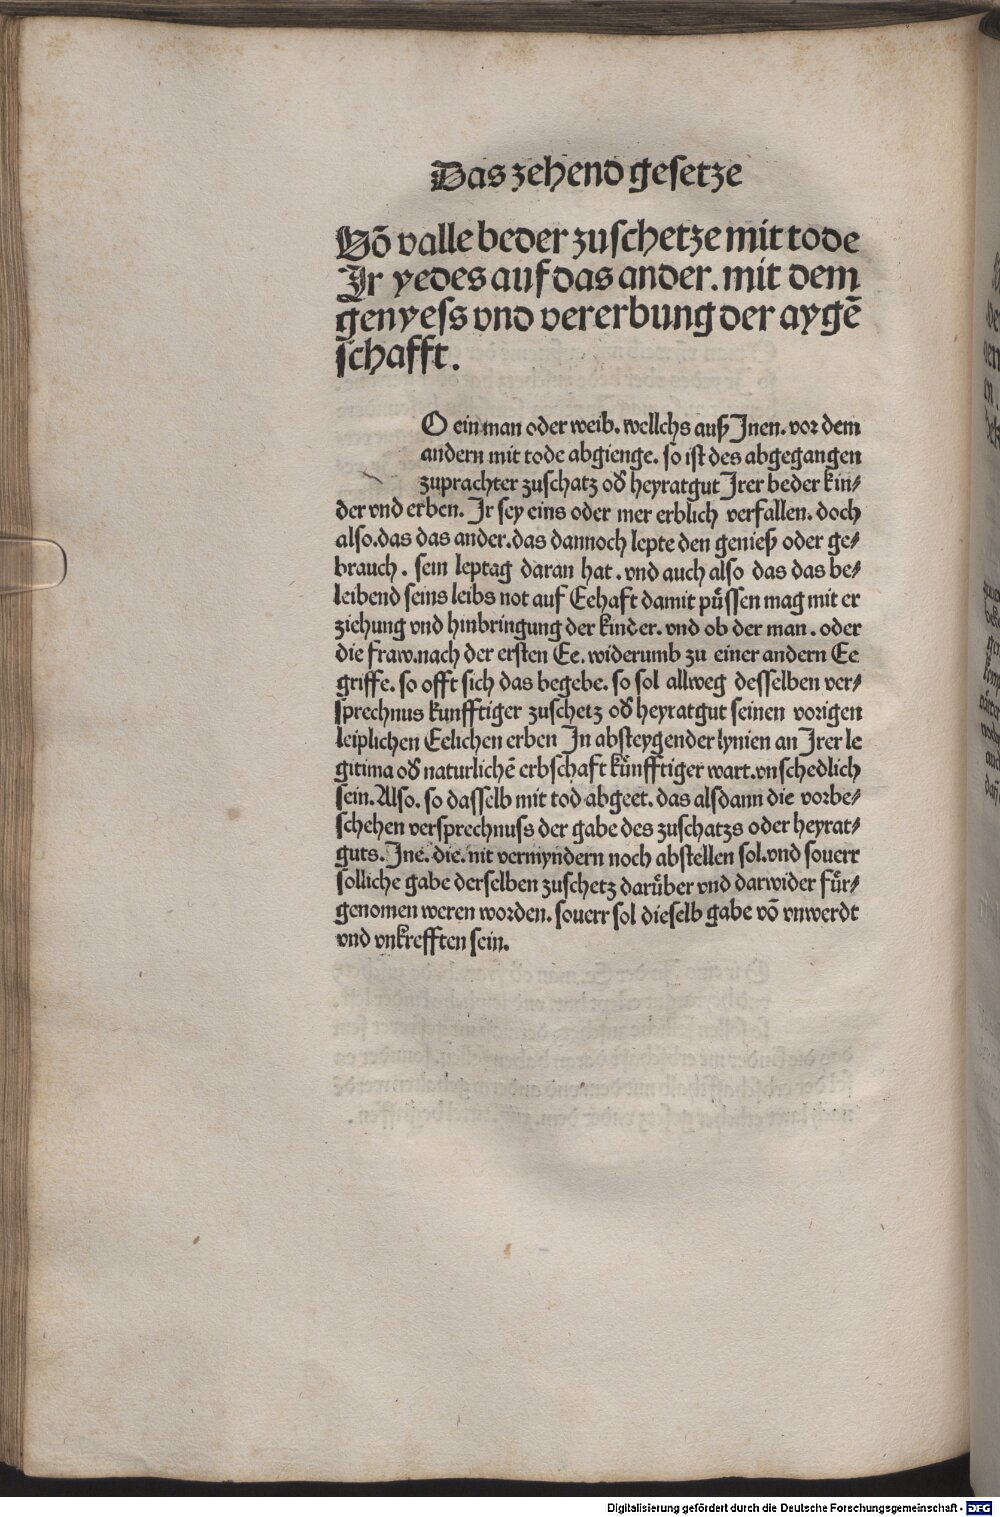 Das zehend gesetze
Võ valle beder zuschetze mit tode
Ir yedes auf das ander. mit dem
genyess vnd vererbung der aygẽ
schafft.
O ein man oder weib. wellchs auß Inen. vor dem
andern mit tode abgienge. so ist des abgegangen
zuprachter zuschatz od̃ heyratgut Irer beder kin/
der vnd erben. Ir sey eins oder mer erblich verfallen. doch
also. das das ander. das dannoch lepte den genieß oder ge/
brauch. sein leptag daran hat. vnd auch also das das be/
leibend seins leibs not auf Eehaft damit půssen mag mit er
ziehung vnd hinbringung der kinder. vnd ob der man. oder
die fraw. nach der ersten Ee. widerumb zu einer andern Ee
griffe. so offt sich das begebe. so sol allweg desselben ver/
sprechnus kunfftiger zuschetz od̃ heyratgut seinen vorigen
leiplichen Eelichen erben In absteygender lynien an Irer le
gitima od̃ naturlichẽ erbschaft kůnfftiger wart. vnschedlich
sein. Also. so dasselb mit tod abgeet. das alsdann die vorbe/
schehen versprechnuss der gabe des zuschatzs oder heyrat/
guts. Ine. die. nit vermyndern noch abstellen sol. vnd souerr
solliche gabe derselben zuschetz darůber vnd darwider fůr/
genomen weren worden. souerr sol dieselb gabe võ vnwerdt
vnd vnkrefften sein.
Digitalisierung gefördert durch die Deutsche Forschungsgemeinschaft - DFG